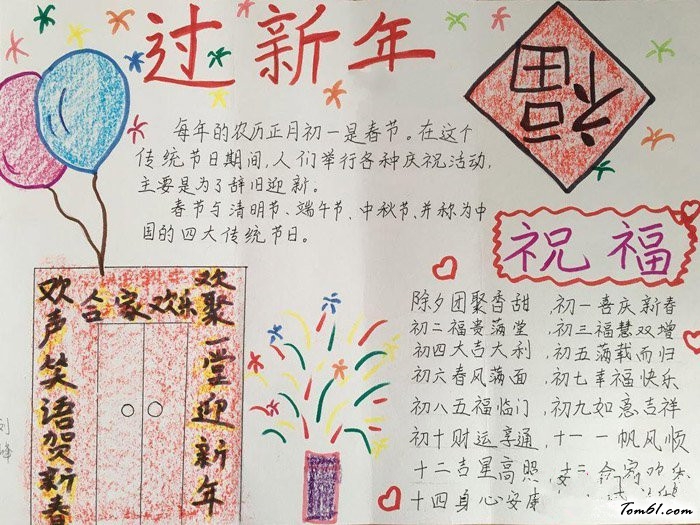 过新年
福
每年的农历正月初一是春节。在这个
传统节日期间,人们举行各种庆祝活动,
主要是为了辞旧迎新。
春节与清明节、端午节、中秋节、并称为中
国的四大传统节日。
祝福
合家欢乐
欢声笑语贺新春
欢聚一堂迎新年
除夕团聚香甜,初一喜庆新春
初二福贵满堂,初三福慧双增
初四大吉大利,初五满载而归
初六春风满面,初七幸福快乐
初八五福临门,初九如意吉祥
初十财运享通,十一一帆风顺
十二吉星高照,
十四身心安康
Tom61.com